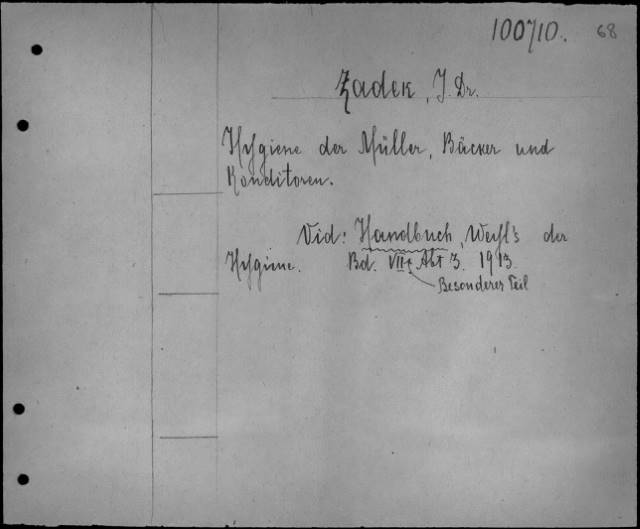 100710. 68
Zadek, J. Dr.
Hygiene der Müller, Bäcker und
Konditoren.
Vid: Handbuch, Weyl's der
Hygiene. Bd. VII Abt 3. 1913.
Besonderer Teil